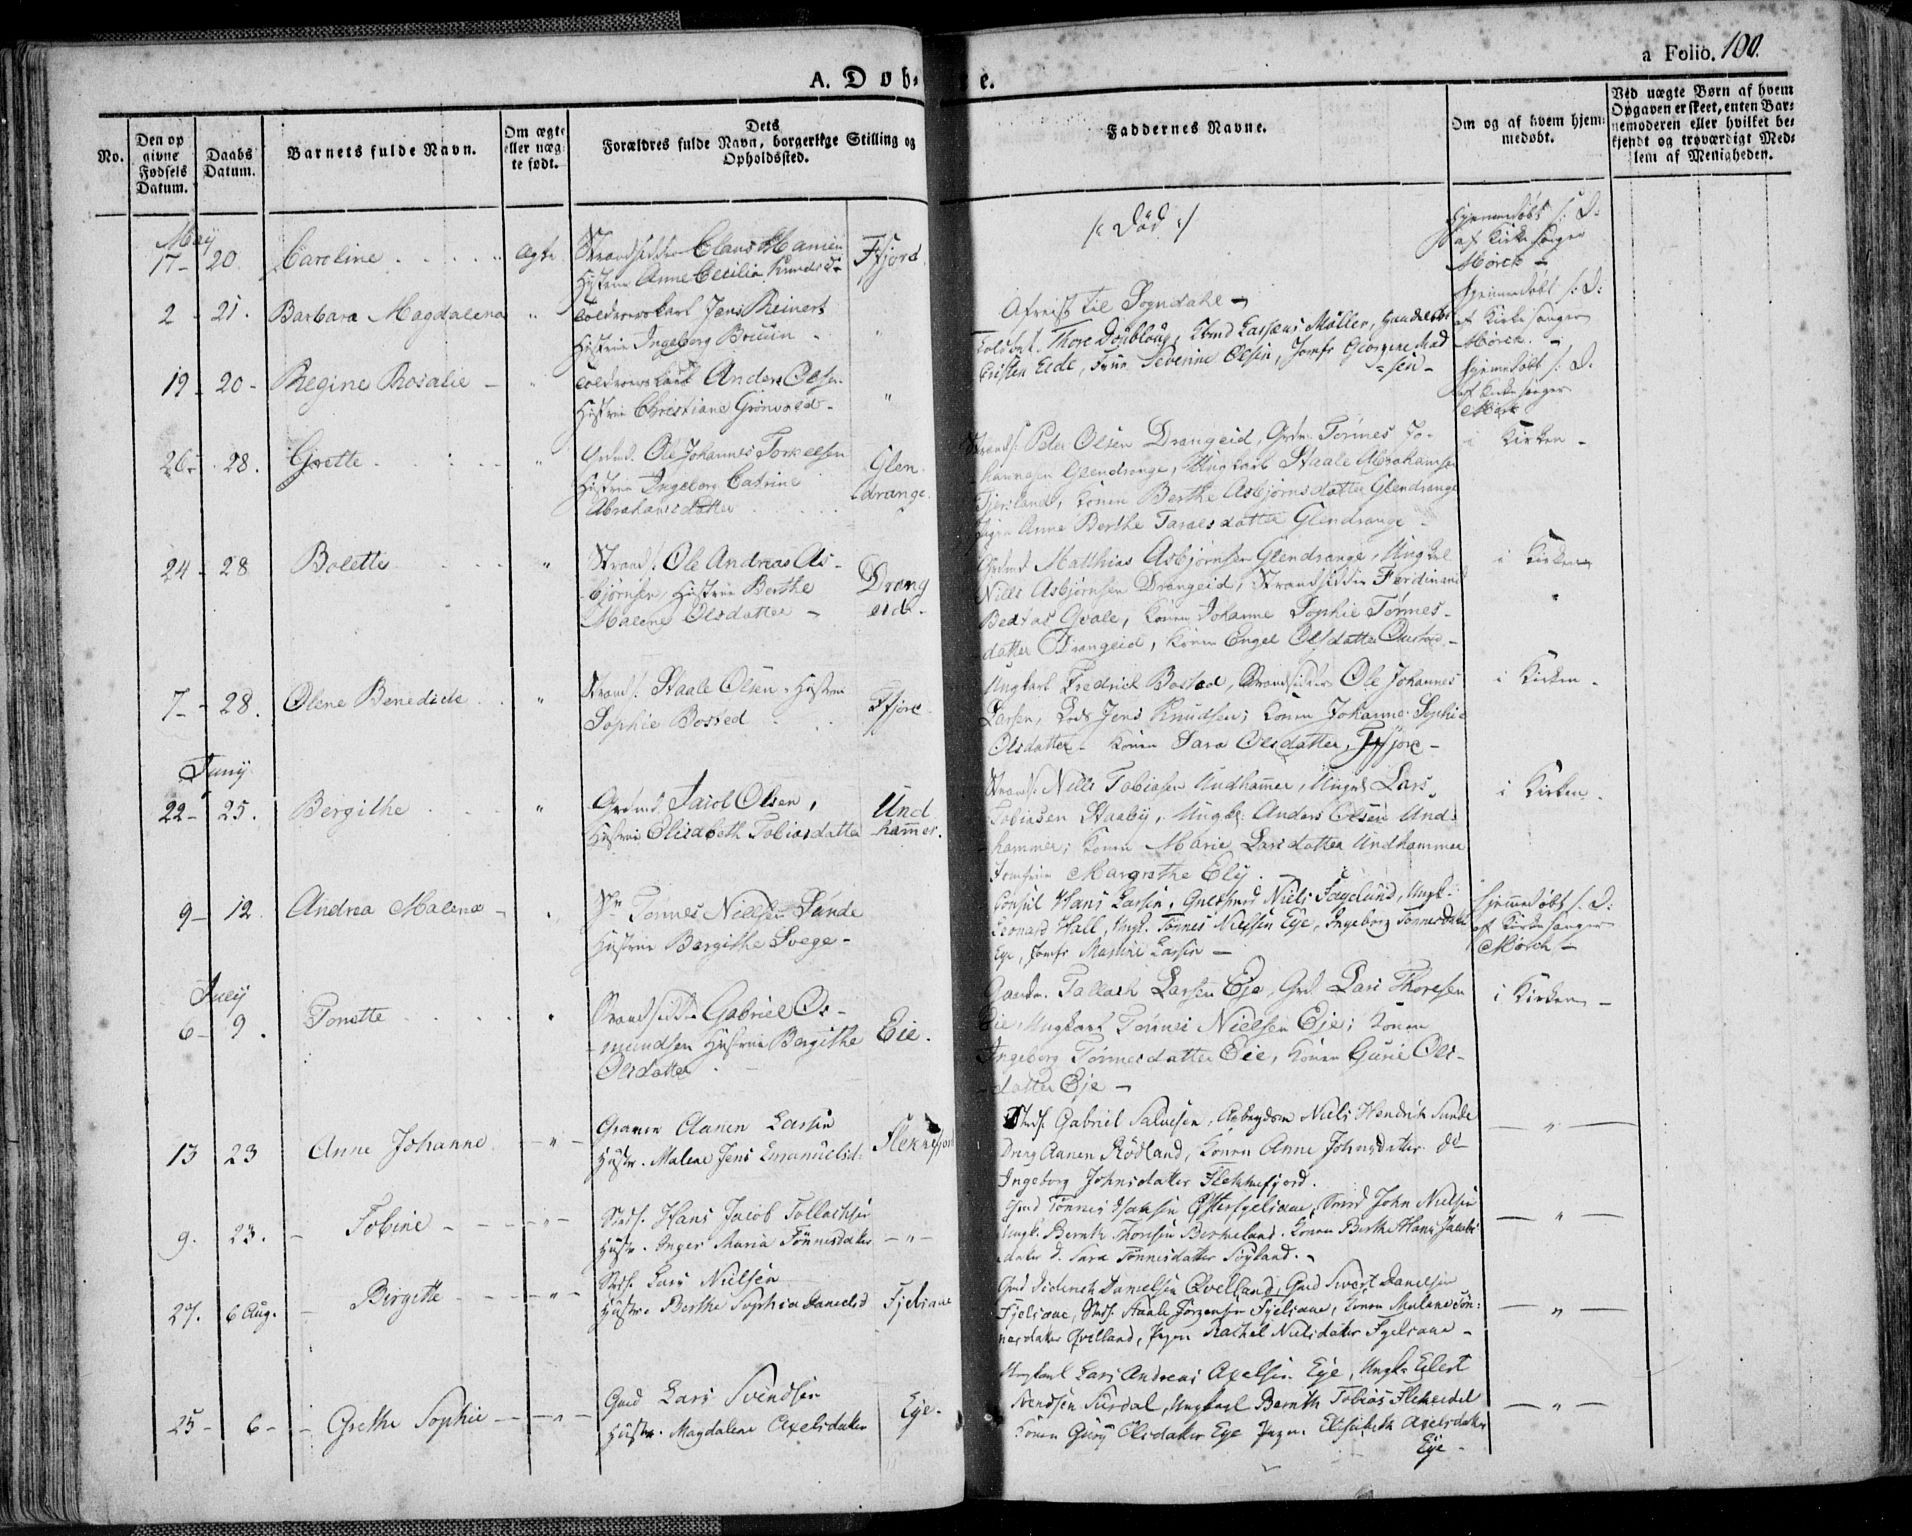 a Folio. 100.
A. Döb-
e.
No.
Den op
givne
Fødsels
Datum.
Daabs
Datum.
Barnets fulde Navn.
Om ægte
eller uæg-
te født.
Dets
Forældres fulde Navn, borgerlige Stilling og
Opholdssted.
Faddernes Navne.
Om og af hvem hjem-
medøbt.
Ved uægte Børn af hvem
Opgaven er skeet, enten Bar-
nemoderen eller hvilket be-
kjendt og troværdigt Med-
lem af Menigheden.
May
17 - 20. Caroline Ægte Strandsidder Claus Hansen
Hustrue Anne Cecilia Knudsd:
Ffjord
/: Död :/
Hjemmedöbt s: D:
af Kirkesanger
Mörck -
2 - 21. Barbara Magdalena " Toldroerskarl Jens Reinert
Hustrue Ingeborg Bruun - "
Afreist til Sogndahl -
Hjemmedöbt s: D:
af Kirkesanger
Mörck. -
19 - 20 - Regine Rosalie - " Toldroerskarl Anders Olsen
Hustrue Christiane Grönvold - "
Thore Doublaag, Lassens Möller,
Eide, Frue Severine Olsen, Jomfr Georgine Mad
=sen -
Hjemmedöbt s: D:
af Kirkesanger
Mörk
26 - 28. Grette " Ole Johannes Torkelsen
Hustrue Ingeborg Catrine
Abrahamsdatter
Glen
drange.
Strands: Peder Olsen Drangeid, Grdm: Tönnes Jo-
hannesen Glendrange, Ungkarl Staale Abrahamsen
Fjersland, Konen Berthe Asbjörnsdatter Glendrange
Pigen Anne Berthe Taraldsdatter Glendrange -
i Kirken -
24 - 28 Bolette " Strands: Ole Andreas As-
björnsen, Hustrue Berthe
Malene Olsdatter -
Drang
eid -
Grdmd Matthias Asbjörnsen Glendrange, Ungkrl
Nills Asbjörnsen Drangeid, Strandsidder Ferdinand
Qvale, Konen Johanne Sophie Tönnes-
datter Drangeid, Konen Engel Olsdatter
i Kirken
7 - 28. Olene Benedicte " Strands: Staale Olsen, Hustrue
Sophie Bosted
Ffjord
Ungkarl Fredrick Bostad, Strandsidder Ole Johannes
Larsen, Lods Jens Knudsen; Konen Johanne Sophie
Olsdatter - Konen Sara Olsdatter, Ffjord -
i Kirken -
Juny
22 - 25. Bergithe " Grdmd. Jacob Olsen,
Hustrue Elisabeth Tobiasdatter
Und
hammer.
Strands: Nills Tobiasen Undhammer, Ungk Lars
Tobiasen Staaby, Ungk: Anders Olsen Und-
hammer; Konen Marie Larsdatter Undhammer
Jomfrue Margrethe Ely. -
i Kirken -
9 - 12. Andrea Malena - Hr Tönnes Nielsen Sande
Hustrue Bergithe Svege -
Consul Hans Larsen, Niels Fagelund, Ungk:
Leonard Hall, Ungk. Tönnes Nielsen Eye, Ingeborg Tönnesdatt
Eye, Jomfr Martine Larsen -
Hjemmedöbt s: D:
af Kirkesanger
Mörch -
July
6 - 9. Tonette Strandsidder Gabriel Os-
mundsen Hustrue Bergithe
Olsdatter
Eie.
Tallach Larsen Eje, Grd Lars Thoresen
Eie, Ungkarl Tönnes Nielsen Eje; Konen
Ingeborg Tönnesdatter Eie, Konen Gurie Ols-
datter Eje -
i Kirken -
13 23 Anne Johanne - " - Graver Aanen Larsen
Hustr. Malene Jens Emanuelsd:
Flekkefjord
Strds. Gabriel Salvesen, Niels Hendrik Sande
Dreng Aanen Rödland, Konen Anne Johnsdatter do
Ingeborg Johnsdatter Flekkefjord.
- " -
9. 23. - Tobine - " - Strds. Hans Jacob Tollachsen
Hustr. Inger Maria Tönnesdatter - " -
Gmd Tönnes Isaksen Österfjelsaae, Smed John Nielsen
Ungk. Bernth Thorsen Berkeland. Konen Berthe Hans Jacobs
datter d. Sara Tönnesdatter Söyland. -
- " -
27. 6 Aug. - Birgitte - " - Strds. Lars Nielsen
Hustr. Berthe Sophia Danielsd
Fjelsaae
Gmd Diderich Danielsen Qvelland, Gmd Sivert Danielsen
Fjelsaae, Strds. Staale Jörgensen Fjelsaae, Konen Malene Tön-
nesdatter Qvelland, Pigen Rachel Nielsdatter Fjelsaae -
- " -
25 - 6 - - Grethe Sophie - " - Gmd Lars Svendsen
Hustr. Magdalene Axelsdatter
Eje -
Ungkarl Lars Andreas Axelsen Eye, Ungk. Eilert
Svendsen Surdal, Ungkarl Bernth Tobias Flikeidel
Konen Gury Olsdatter Eye Pigen Elisabeth Axelsdatter
Eye -
- " -